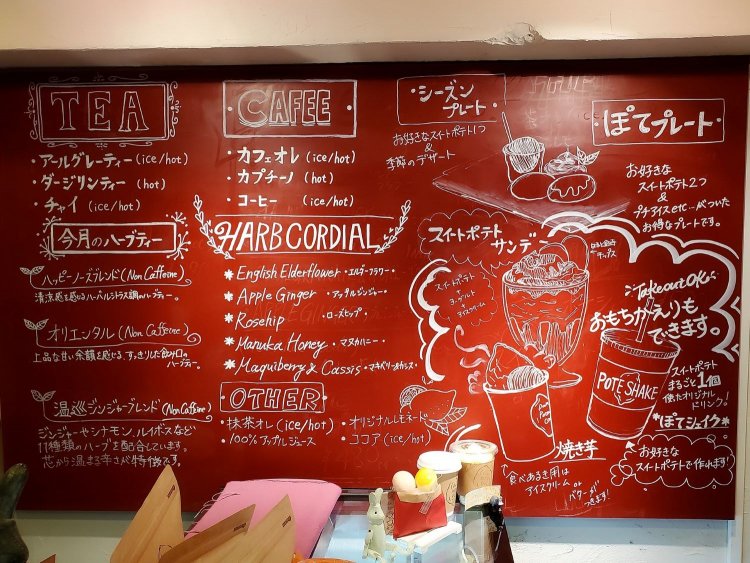 TEA
・アールグレーティー (ice/hot)
・ダージリンティー (hot)
・チャイ (ice/hot)
今月のハーブティー
ハッピーノーズブレンド (Non Caffeine)
清涼感を感じるハーバルシトラス調のハーブティー。
オリエンタル (Non Caffeine)
上品な甘い余韻を感じる、すっきりした飲み口の
ハーブティー。
温巡ジンジャーブレンド (Non Caffeine)
ジンジャーやシナモン、ルイボスなど
11種類のハーブを配合しています。
芯から温まる辛さが特徴です。
CAFEE
・カフェオレ (ice/hot)
・カプチーノ (hot)
・コーヒー (ice/hot)
HARB CORDIAL
* English Elderflower ・エルダーフラワー・
* Apple Ginger ・アップルジンジャー・
* Rosehip ・ローズヒップ・
* Manuka Honey ・マヌカハニー・
* Maquiberry & Cassis ・マキベリー&カシス・
OTHER
・抹茶オレ (ice/hot)
・100%アップルジュース
・オリジナルレモネード
・ココア (ice/hot)
・シーズン
プレート・
お好きなスイートポテト1つ
&
季節のデザート
・ぽてプレート・
お好きな
スイートポテト2つ
&
プチアイスetc…がついた
お得なプレートです。
スイートポテト
サンデー
スイートポテト
+
ヨーグルト
+
アイスクリーム
チップス
Take out OK
おもちかえりも
できます。
POTE SHAKE
スイートポテト
まるごと1個
使たオリジナル
ドリンク!
*ぽてシェイク*
お好きな
スイートポテトで作れます!
焼き芋
食べあるき用は
アイスクリーム or
バターが
つきます!